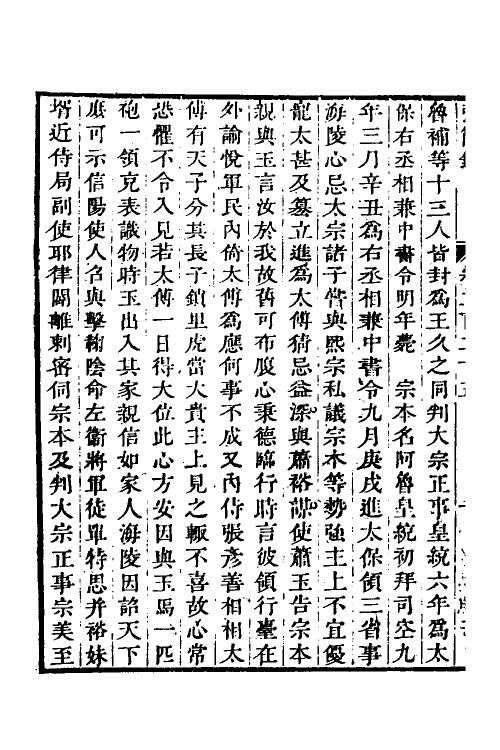 魯補等十三人皆封爲王久之同判大宗正事皇統六年爲太
保右丞相兼中書令明年薨　宗本名阿魯皇統初拜司空九
年三月辛丑爲右丞相兼中書令九月庚戌進太保領三省事
海陵心忌太宗諸子嘗與熙宗私議宗本等勢強主上不宜優
寵太甚及篡立進爲太傅猜忌益深與蕭裕謀使蕭玉告宗本
親與玉言汝於我故舊可布腹心秉德臨行時言彼領行臺在
外諭悅軍民內倚太傅爲應何事不成又內侍張彥善相相太
傅有天子分其長子鎖里虎當大貴主上見之輒不喜故心常
恐懼不令入見若太傅一日得大位此心方安因與玉馬一匹
袍一領克表識物時玉出入其家親信如家人海陵因詒天下
庶可示信陽使人名與擊鞠陰命左衞將軍徒單特思并裕妹
壻近侍局副使耶律闢離剌密伺宗本及判大宗正事宗美至